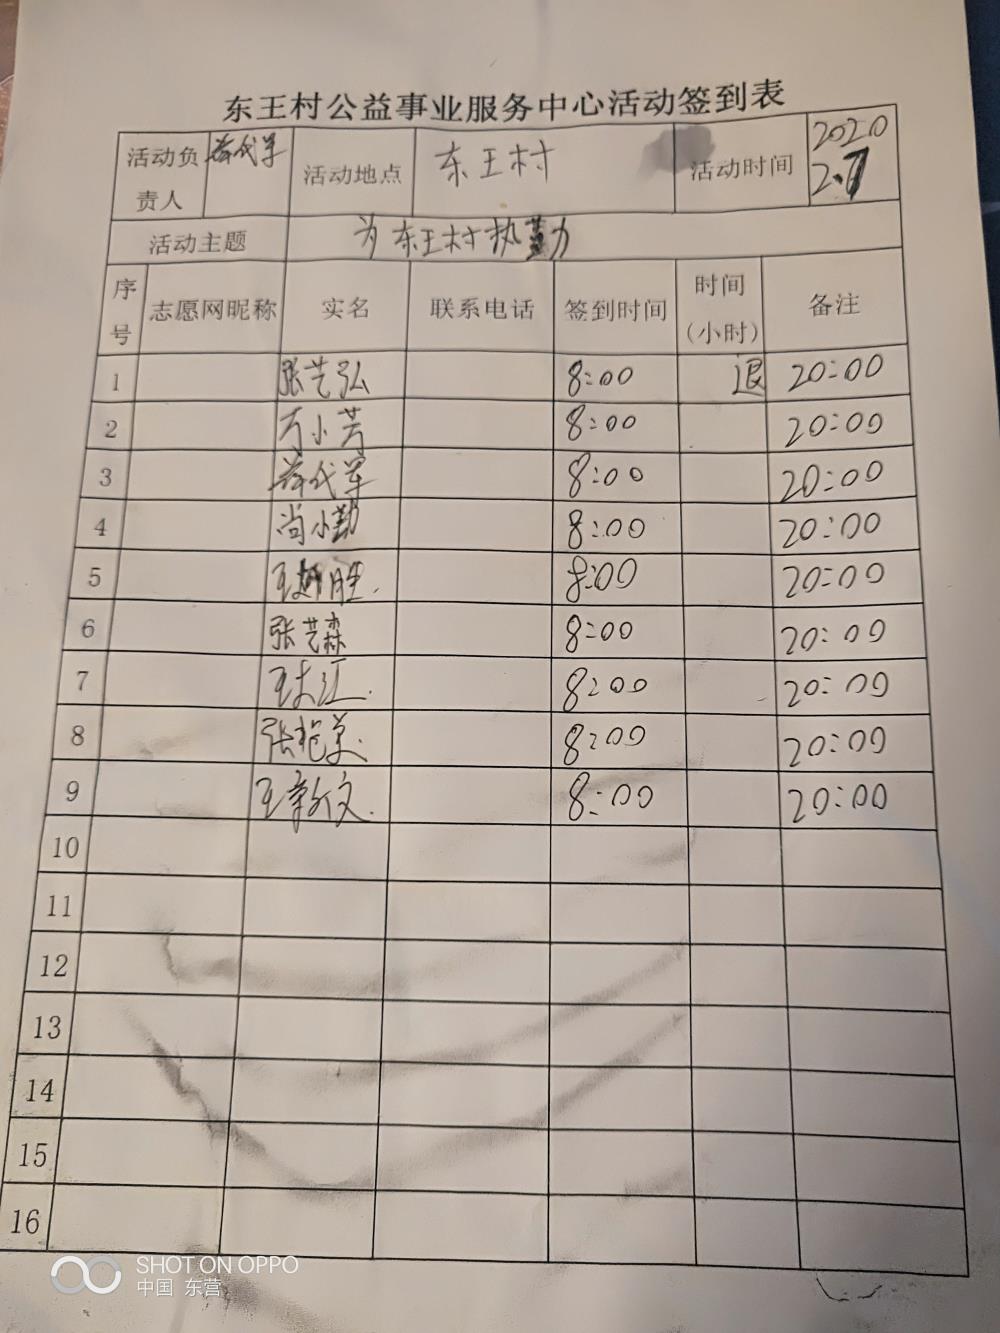 东王村公益事业服务中心活动签到表
活动负责人 活动地点 东王村 活动时间 2020 2.7
活动主题 为东王村执勤
序号 志愿网昵称 实名 联系电话 签到时间 时间(小时) 备注
1 张艺弘 8:00 退 20:00
2 万小芳 8:00 20:00
3 8:00 20:00
4 尚小勤 8:00 20:00
5 8:00 20:00
6 张艺森 8:00 20:00
7 8:00 20:00
8 8:00 20:00
9 8:00 20:00
10
11
12
13
14
15
16
SHOT ON OPPO
中国 东营